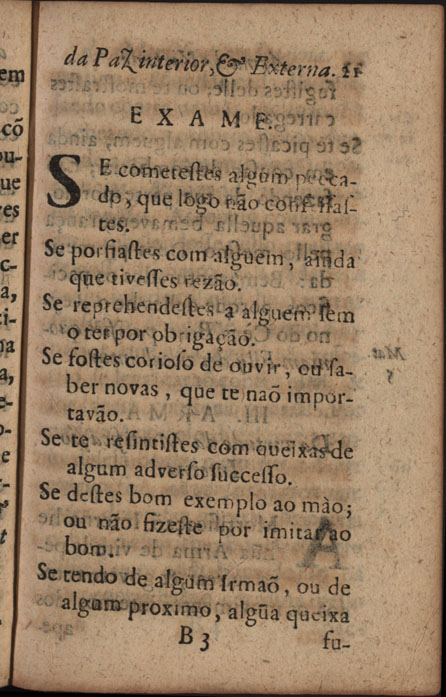 da Paz interior, & Externa. 21
EXAME.
SE cometeſtes algum pecca-
do, que logo não confeſſaſ-
tes.
Se porfiaſtes com alguem, ainda
que tiveſſes rezão.
Se reprehendeſtes a alguem ſem
o ter por obrigação.
Se foſtes corioſo de ouvir, ou ſa-
ber novas, que te naõ impor-
tavão.
Se te reſintiſtes com queixas de
algum adverſo ſucceſſo.
Se deſtes bom exemplo ao mào;
ou não fizeſte por imitar ao
bom.
Se tendo de algum Irmaõ, ou de
algum proximo, algũa queixa
B 3 fu-